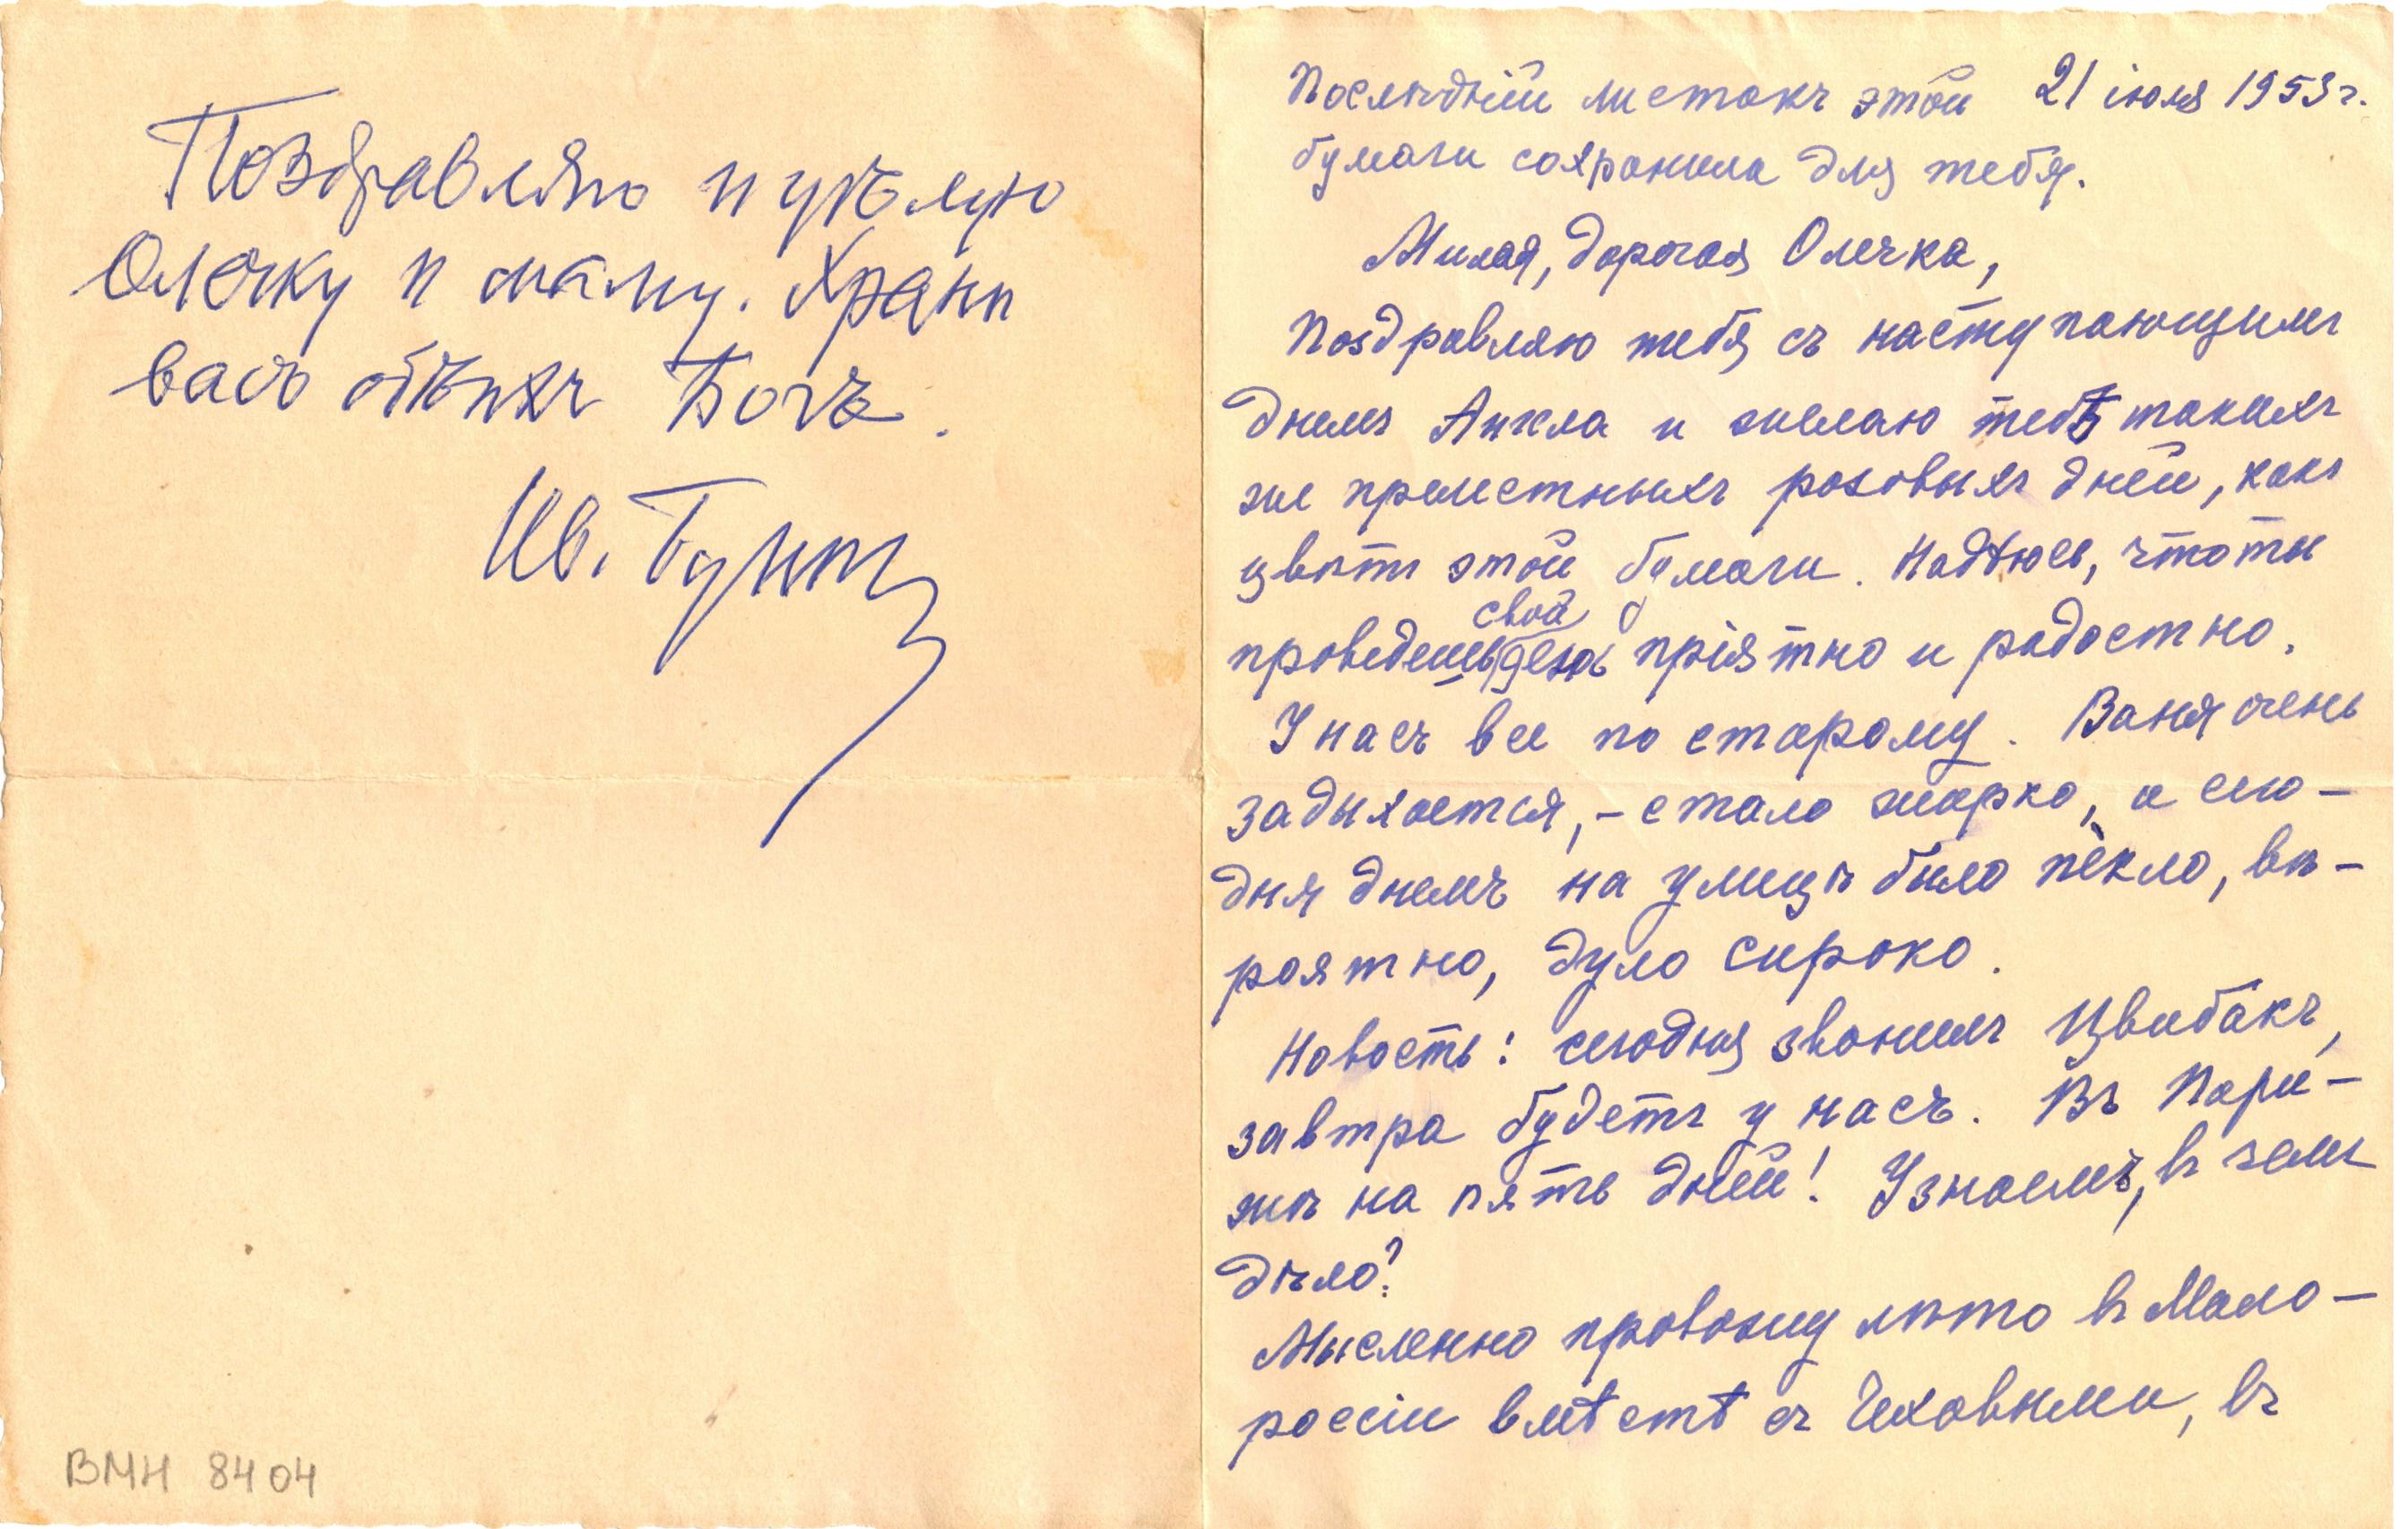 Поздравляю и цѣлую
Олечку и маму. Храни
васъ обѣихъ Богъ.
Ив. Бунин
ВМН 8404
Послѣдній листокъ этой 21 июля 1953 г.
бумаги сохранила для тебя.
Милая, дорогая Олечка,
Поздравляю тебя съ наступающимъ
днемъ Ангела и желаю тебѣ такихъ
же прелестныхъ розовыхъ дней, какъ
цвѣтъ этой бумаги. Надѣюсь, что ты
свой
проведешь день пріятно и радостно.
У насъ все по старому. Ваня очень
задыхается, – стало жарко, а сего–
дня днемъ на улицѣ было пекло, вѣ–
роятно, дуло сироко.
Новость: сегодня звонилъ Цвибакъ,
завтра будетъ у насъ. Въ Пари–
жѣ на пять дней! Узнаемъ, въ чемъ
дѣло?
Мысленно провожу лѣто въ Мало–
россіи вмѣстѣ съ Чеховыми, въ